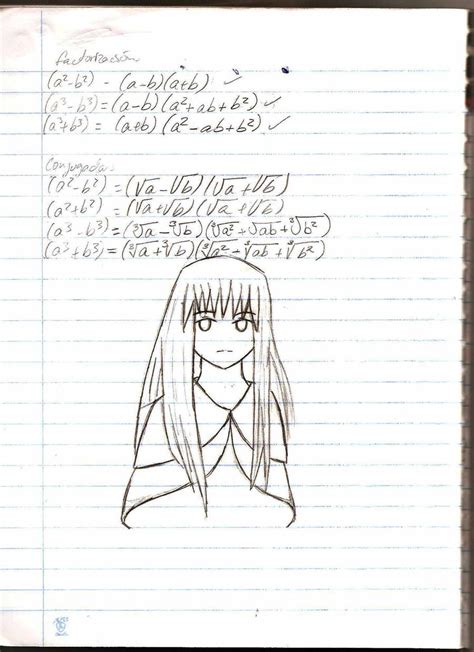 factorización
(a²-b²) - (a-b)(a+b) ✓
(a³-b³) = (a-b)(a²+ab+b²) ✓
(a³+b³) = (a+b)(a²-ab+b²) ✓
Conjugada
(a²-b²) = (√a-√b)(√a+√b)
(a²+b²) = (√a+√b)(√a+√b)
(a³-b³) = (∛a-∛b)(∛a²+∛ab+∛b²)
(a³+b³) = (∛a+∛b)(∛a²+∛ab+∛b²)